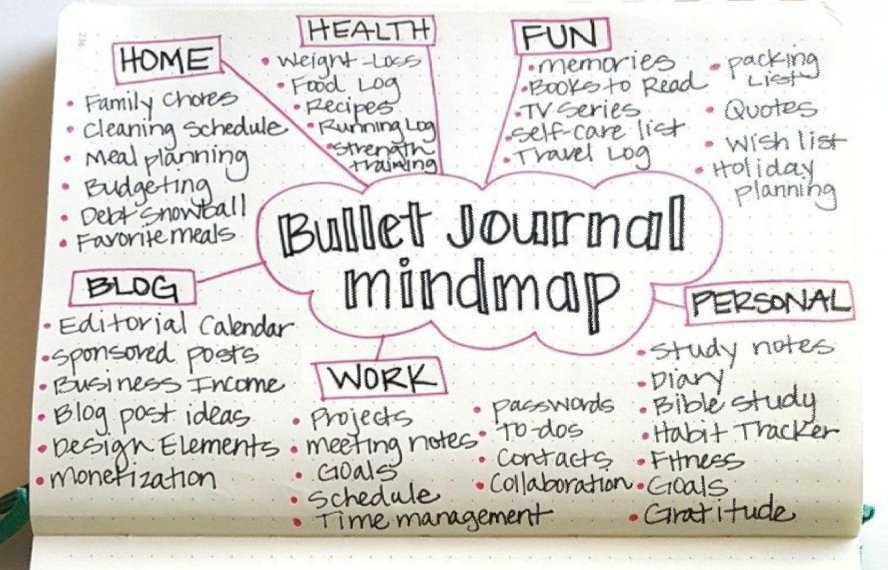 236
HOME
• Family Chores
• Cleaning Schedule
• Meal planning
• Budgeting
• Debt Snowball
• Favorite meals
HEALTH
• Weight-Loss
• Food Log
• Recipes
• Running Log
• Strength
training
FUN
• memories
• Books to Read
• TV Series
• Self-care list
• Travel Log
• packing
List
• Quotes
• Wish list
• Holiday
planning
Bullet Journal
mindmap
BLOG
• Editorial Calendar
• Sponsored posts
• Business Income
• Blog post ideas
• Design Elements
• Monetization
WORK
• Projects
• meeting notes
• Goals
• Schedule
• Time management
• passwords
• To-dos
• Contacts
• Collaboration
PERSONAL
• Study notes
• Diary
• Bible study
• Habit Tracker
• Fitness
• Goals
• Gratitude